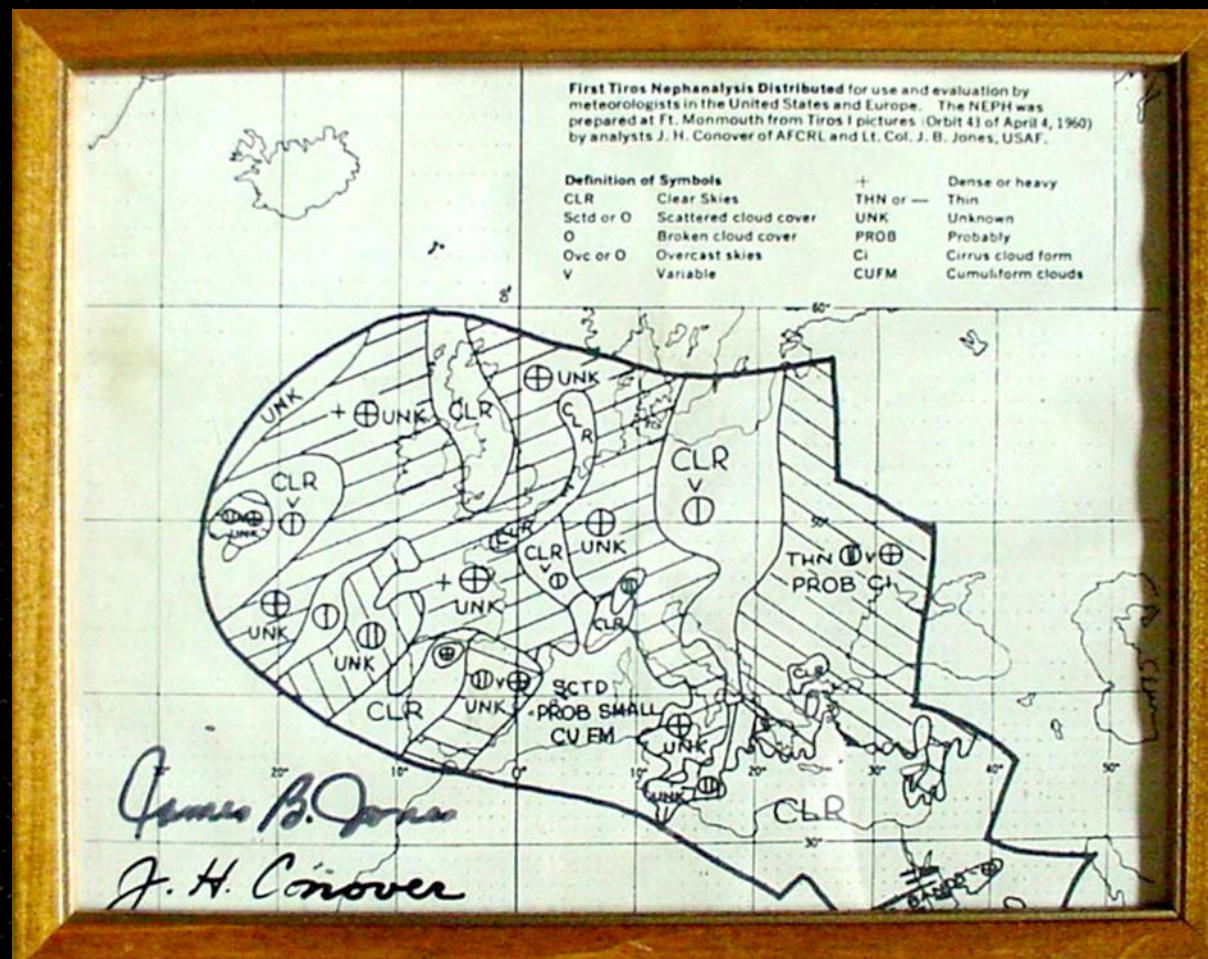 First Tiros Nephanalysis Distributed for use and evaluation by
meteorologists in the United States and Europe. The NEPH was
prepared at Ft. Monmouth from Tiros I pictures (Orbit 43 of April 4, 1960)
by analysts J. H. Conover of AFCRL and Lt. Col. J. B. Jones, USAF.
Definition of Symbols
CLR Clear Skies
Sctd or O Scattered cloud cover
O Broken cloud cover
Ovc or O Overcast skies
V Variable
+ Dense or heavy
THN or — Thin
UNK Unknown
PROB Probably
Ci Cirrus cloud form
CUFM Cumuliform clouds
60°
UNK
+ UNK
CLR
UNK
CLR
CLR
V
CLR
V
UNK
50°
CLR
CLR
V
UNK
THN V
PROB Ci
+
UNK
UNK
UNK
CLR
CLR
CLR
V
UNK
SCTD
PROB SMALL
CU FM
UNK
UNK
CLR
20°
10°
0°
10°
20°
30°
40°
50°
30°
James B. Jones
J. H. Conover